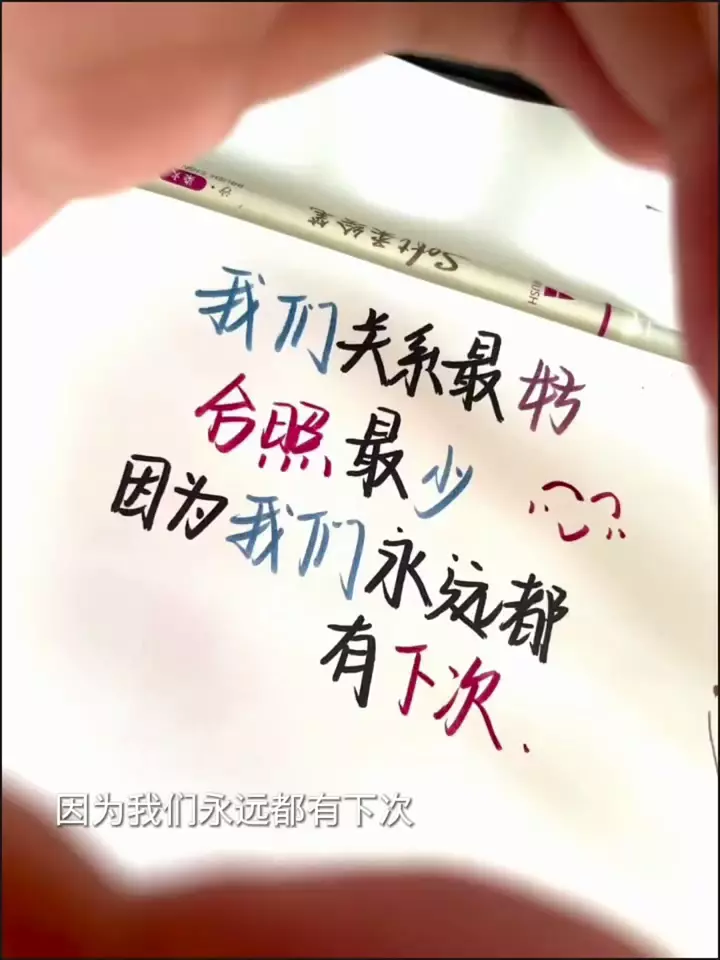 Soft柔绘笔
我们关系最好
合照最少
因为我们永远都
有下次.
因为我们永远都有下次